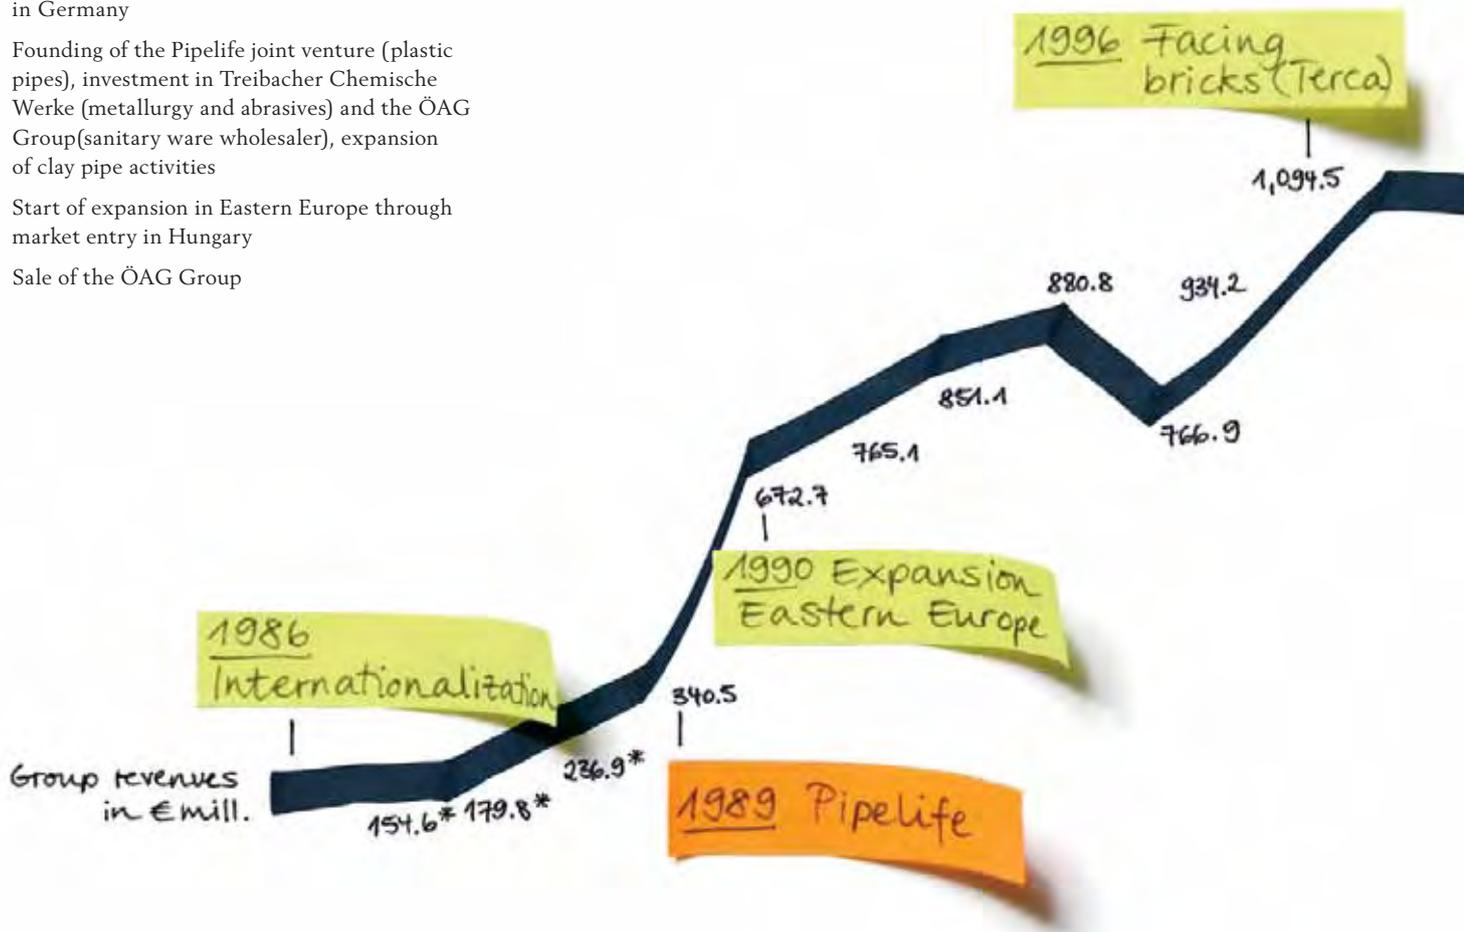 in Germany
Founding of the Pipelife joint venture (plastic
pipes), investment in Treibacher Chemische
Werke (metallurgy and abrasives) and the ÖAG
Group(sanitary ware wholesaler), expansion
of clay pipe activities
Start of expansion in Eastern Europe through
market entry in Hungary
Sale of the ÖAG Group
1996 Facing
bricks (Terca)
1,094.5
880.8
934.2
851.1
766.9
765.1
672.7
1990 Expansion
Eastern Europe
1986
Internationalization
340.5
236.9*
Group revenues
in € mill.
154.6* 179.8*
1989 Pipelife